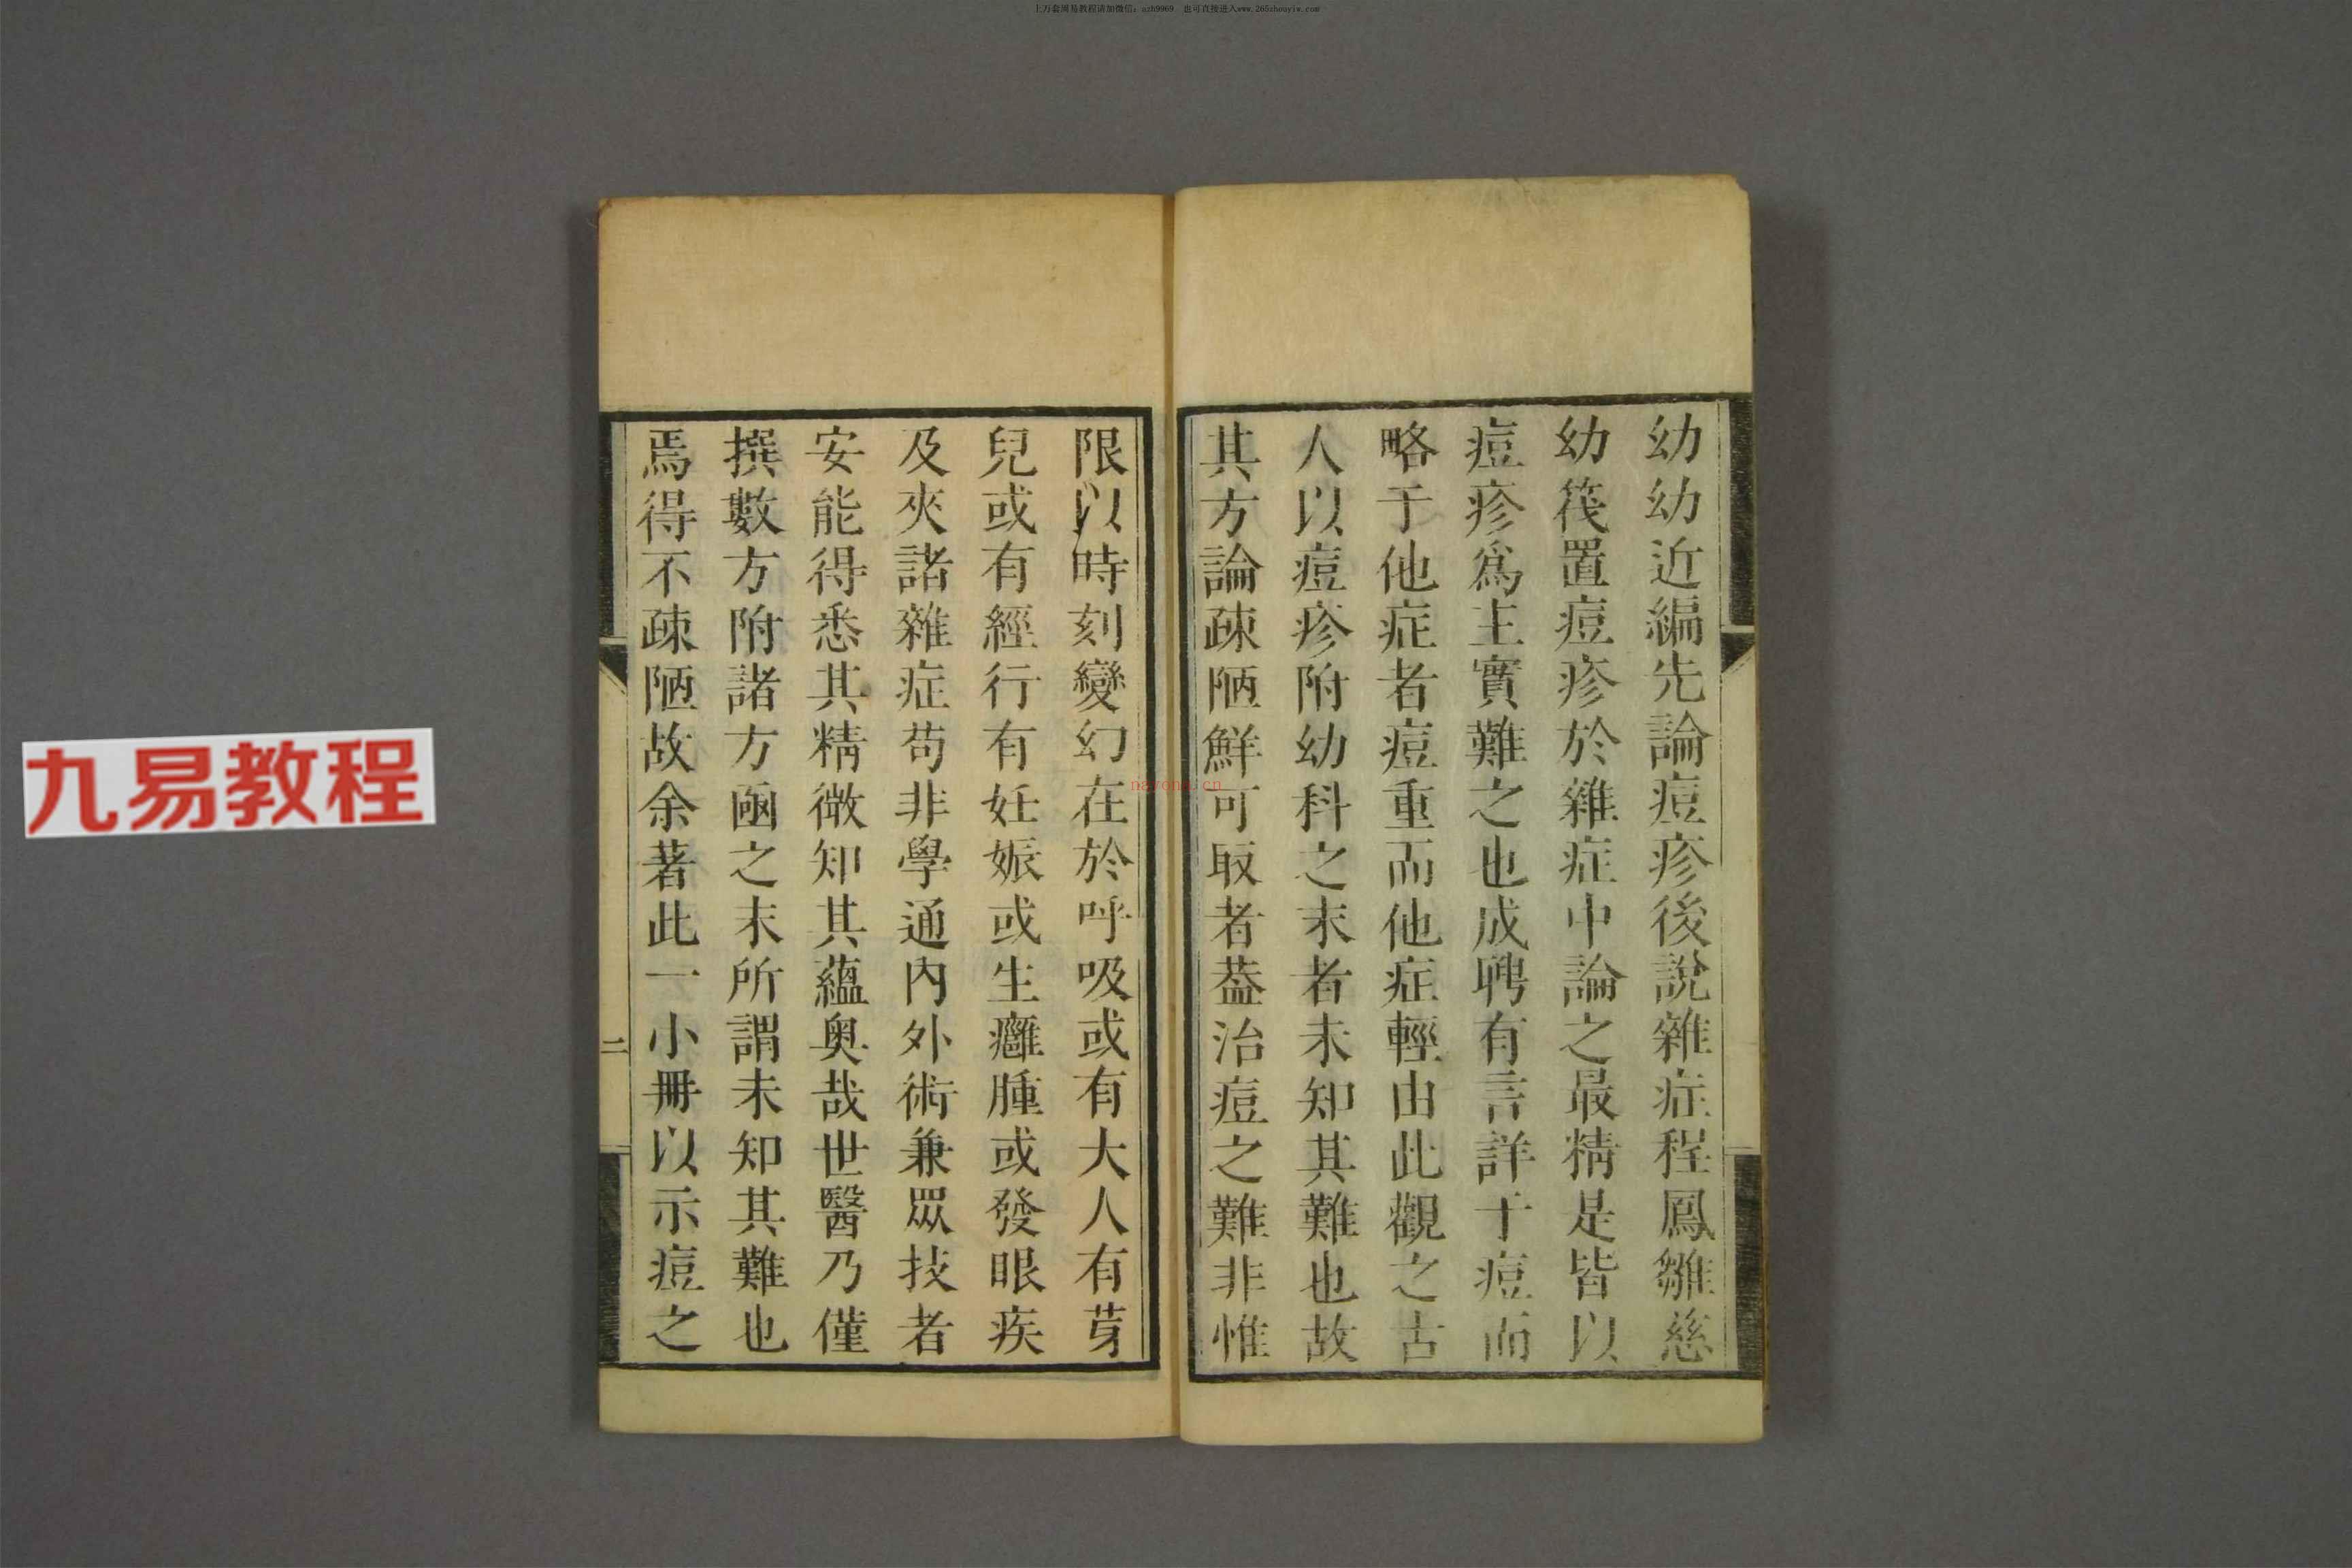 上万套周易教程请加微信：azh9969 也可直接进入www.265zhouyiw.com
幼幼近編先論痘疹後說雜症程鳳雛慈
幼筏置痘疹於雜症中論之最精是皆以
痘疹爲主實難之也成聘有言詳于痘而
略于他症者痘重而他症輕由此觀之古
人以痘疹附幼科之末者未知其難也故
其方論疎陋鮮可取者葢治痘之難非惟
限以時刻變幻在於呼吸或有大人有芽
兒或有經行有妊娠或生癰腫或發眼疾
及夾諸雜症苟非學通內外術兼眾技者
安能得悉其精微知其蘊奥哉世醫乃僅
撰數方附諸方凾之末所謂未知其難也
焉得不疎陋故余著此一小冊以示痘之
二
九易教程
nayona.cn